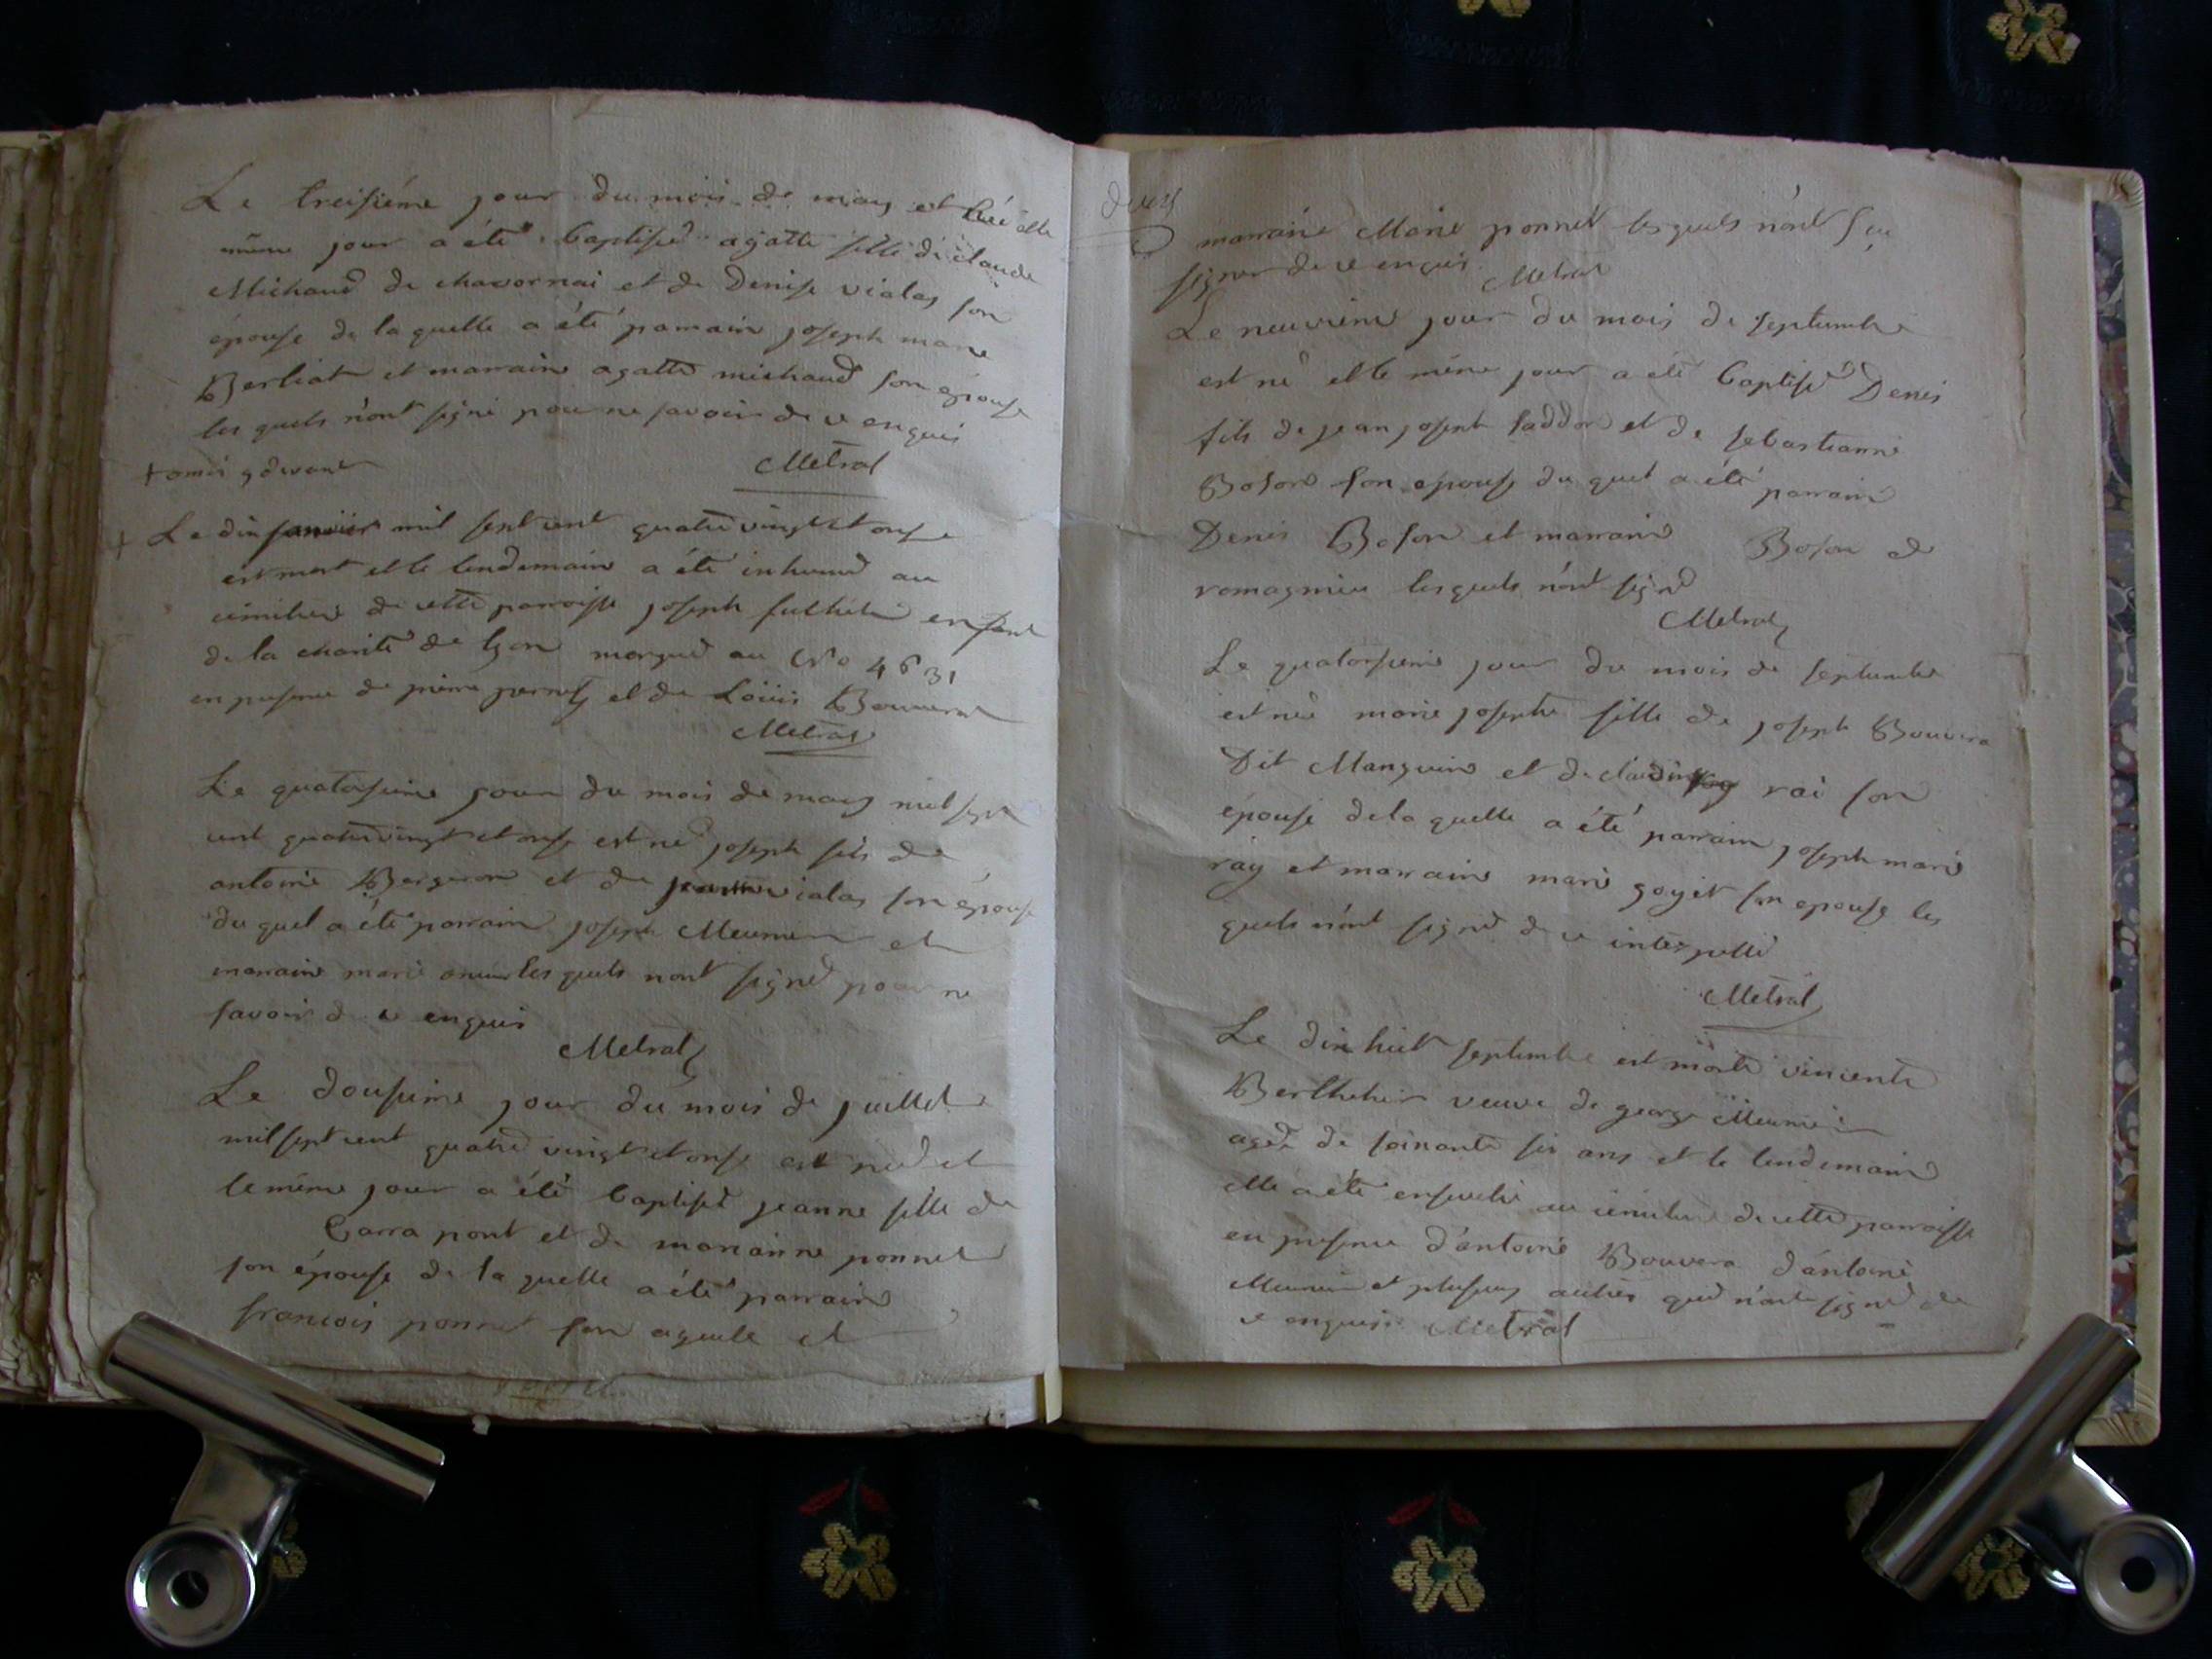 Le treisiéme jour du mois de mars et née et le
même jour a été baptisée agatte fille de claude
Michaud de chavornai et de Denise vialas son
épouse de la quelle a été parrain joseph marie
Berliat et marraine agatte michaud son épouse
les quels n'ont signé pour ne savoir de ce enquis
Metral
+ omis cydevant
+ Le dix janvier mil sept cent quatre vingt et onse
est mort et le lendemain a été inhumé au
cimitiere de cette parroisse joseph enfant
de la charité de lyon marqué au No 4631
en presence de pierre pernet et de Loüis Bouverat
Metral
Le quatorsieme jour du mois de mars mil sept
cent quatre vingt et onse est né joseph fils de
antoine Bergeron et de jeanne vialas son épouse
du quel a été parrain joseph Meunier et
marraine marie les quels n'ont signé pour ne
savoir de ce enquis
Metral
Le dousieme jour du mois de juillet
mil sept cent quatre vingt et onse est née et
le même jour a été baptisée jeanne fille de
Carra pont et de marianne ponnet
son épouse de la quelle a été parrain
francois ponnet son ayeule et
marraine Marie ponnet lesquels n'ont sçu
signer de ce enquis Metral
Le neuvieme jour du mois de septembre
est né et le même jour a été baptisé Denis
fils de jean joseph laddon et de sebastianne
Boson son epouse du quel a été parrain
Denis Boson et marraine Boson de
romagnieu lesquels n'ont signé
Metral
Le quatorsieme jour du mois de septembre
est née marie josephte fille de joseph Bouvera
Dit Manguin et de claudine rai son
épouse de la quelle a été parrain joseph marie
ray et marraine marie goyet son epouse les
quels n'ont signé de ce interpellé
Metral
Le dix huit septembre est morte vincente
Berthelier veuve de george Meunier
agée de soixante six ans et le lendemain
elle a été ensevelie au cimitiere de cette parroisse
en presence d'antoine Bouvera d'antoine
Meunier et plusieurs autres qui n'ont signé de
ce enquis Metral